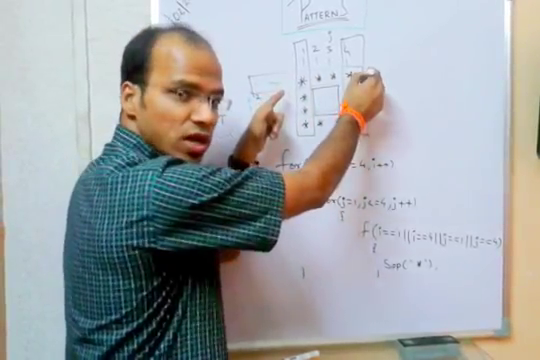 PATTERNS
j
1 2 3 4
* * * *
*
*
* *
for( =4, i++)
for(j=1, j<=4, j++)
{
if(i==1||i==4||j==1||j==4)
{
Sop("*"),
}